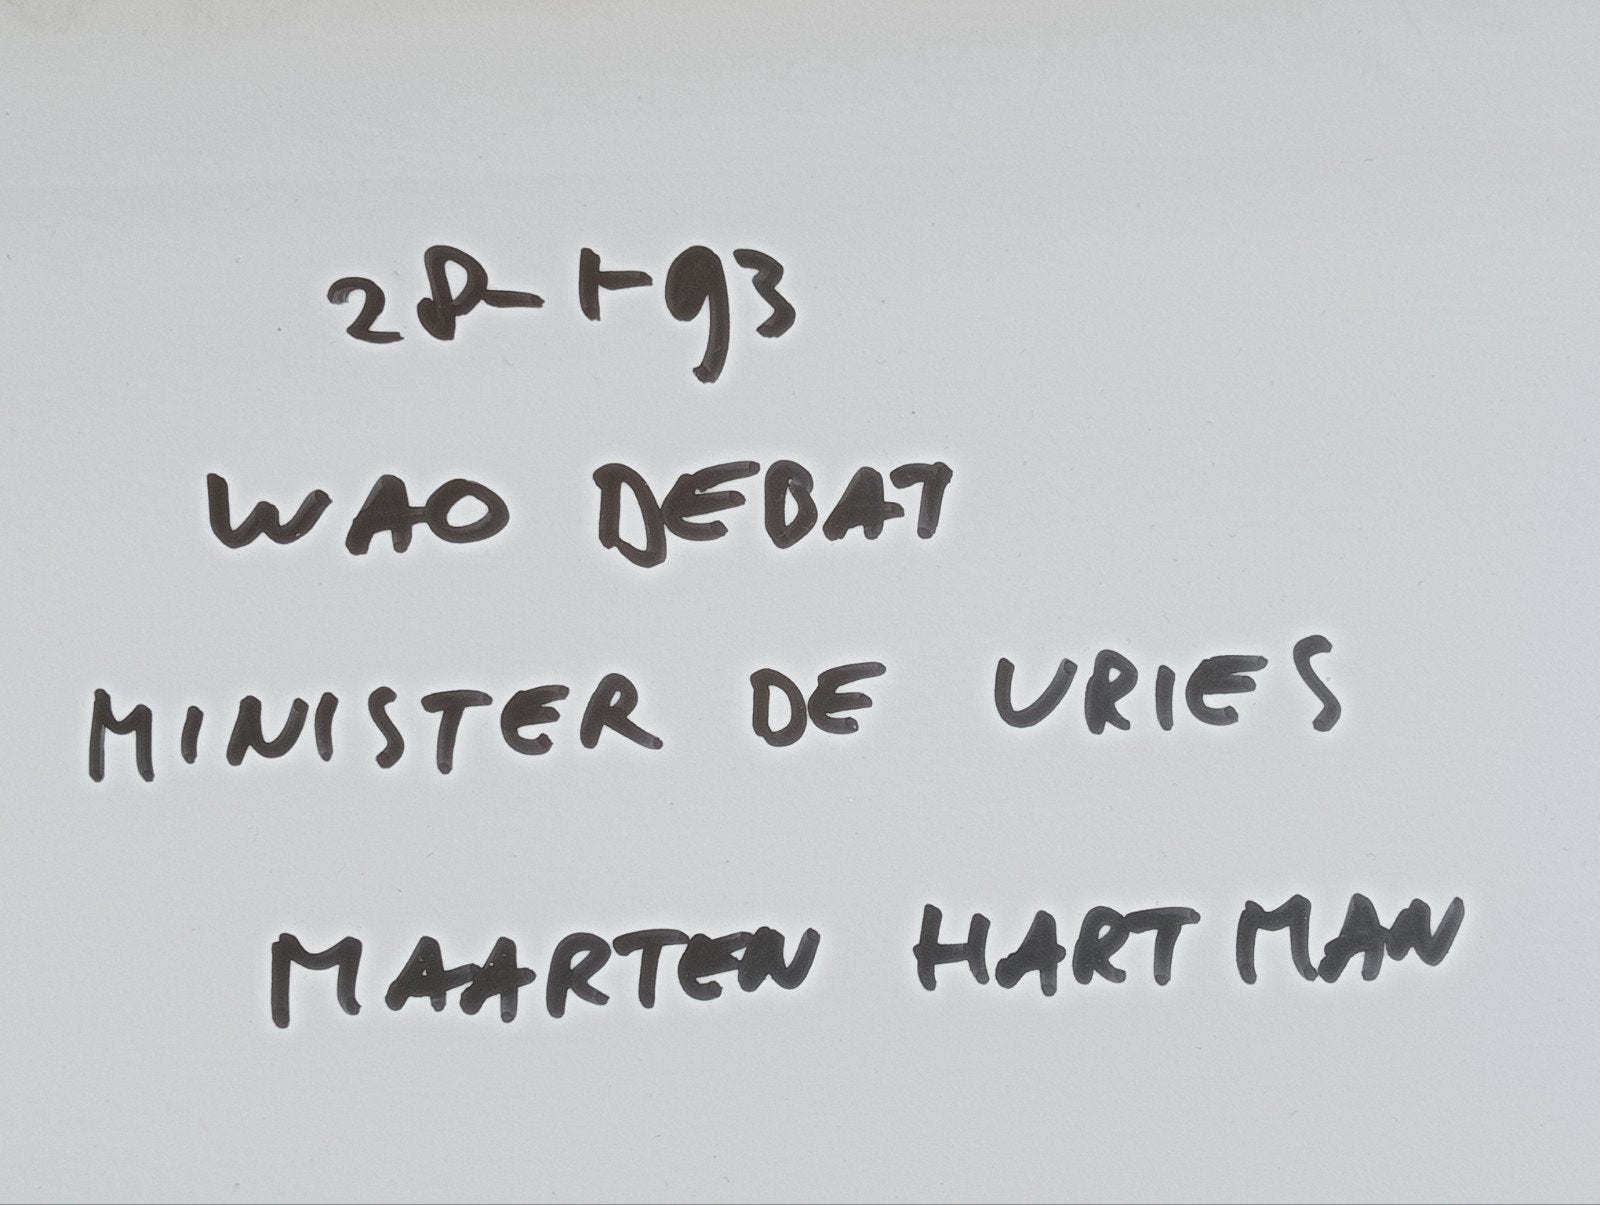 28-1-93
WAO DEBAT
MINISTER DE VRIES
MAARTEN HARTMAN